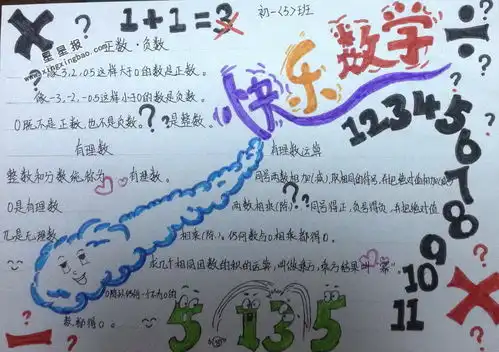 1+1=3
初一<5>班
星星报
xingxingbao.cn
正数·负数
快乐数学
像3,2,0.5这样大于0的数是正数。
像-3,-2,-0.5这样小于0的数是负数。
0既不是正数,也不是负数。??是整数。
有理数
整数和分数统称为有理数。
0是有理数
有理数运算
同号两数相加(减),取相同的符号,并把绝对值相加(减)
两数相乘(除),同号得正,异号得负,并把绝对值
相乘(除),任何数与0相乘都得0。
求几个相同因数的积的运算,叫做乘方,乘方结果叫“幂”
0除以任何一个不为0的
数都得0。
1 2 3 4 5
6
7
8
9
10
11
5 1 3 5